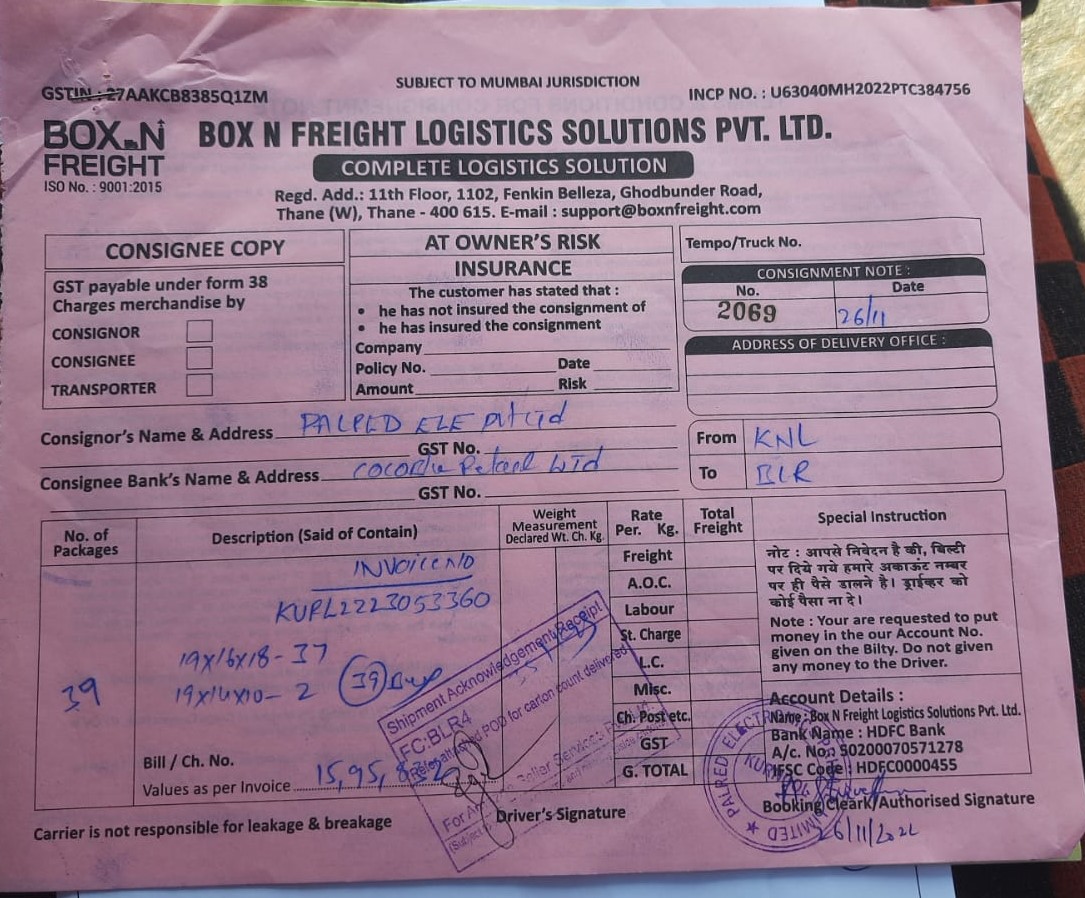 SUBJECT TO MUMBAI JURISDICTION
GSTIN : 27AAKCB8385Q1ZM
INCP NO. : U63040MH2022PTC384756
BOX N FREIGHT
ISO No. : 9001:2015
BOX N FREIGHT LOGISTICS SOLUTIONS PVT. LTD.
COMPLETE LOGISTICS SOLUTION
Regd. Add.: 11th Floor, 1102, Fenkin Belleza, Ghodbunder Road,
Thane (W), Thane - 400 615. E-mail : support@boxnfreight.com
CONSIGNEE COPY
GST payable under form 38
Charges merchandise by
CONSIGNOR
CONSIGNEE
TRANSPORTER
AT OWNER'S RISK
INSURANCE
The customer has stated that :
• he has not insured the consignment of
• he has insured the consignment
Company
Policy No. Date
Amount Risk
Tempo/Truck No.
CONSIGNMENT NOTE :
No. Date
2069 26/11
ADDRESS OF DELIVERY OFFICE :
Consignor's Name & Address PALRED ELE Pvt Ltd
GST No.
Consignee Bank's Name & Address Retail Ltd
GST No.
From KNL
To BLR
No. of Packages
Description (Said of Contain)
Weight Measurement
Declared Wt. Ch. Kg.
Rate Per. Kg.
Total Freight
Special Instruction
INVOICE NO
KUPL2223053360
19x16x18 - 37
19x14x10 - 2
39
39
Bill / Ch. No.
Values as per Invoice 15,95,832
Freight
A.O.C.
Labour
St. Charge
L.C.
Misc.
Ch. Post etc.
GST
G. TOTAL
नोट : आपसे निवेदन है की, बिल्टी
पर दिये गये हमारे अकाऊंट नम्बर
पर ही पैसे डालने है। ड्राईव्हर को
कोई पैसा ना दे।
Note : Your are requested to put
money in the our Account No.
given on the Bilty. Do not given
any money to the Driver.
Account Details :
Name : Box N Freight Logistics Solutions Pvt. Ltd.
Bank Name : HDFC Bank
A/c. No. 50200070571278
IFSC Code : HDFC0000455
Shipment Acknowledgement Receipt
FC:BLR4
POD for carton count delivered
Seller Services
PALRED ELECTR
LIMITED
Carrier is not responsible for leakage & breakage
Driver's Signature
Booking Cleark/Authorised Signature
26/11/2022